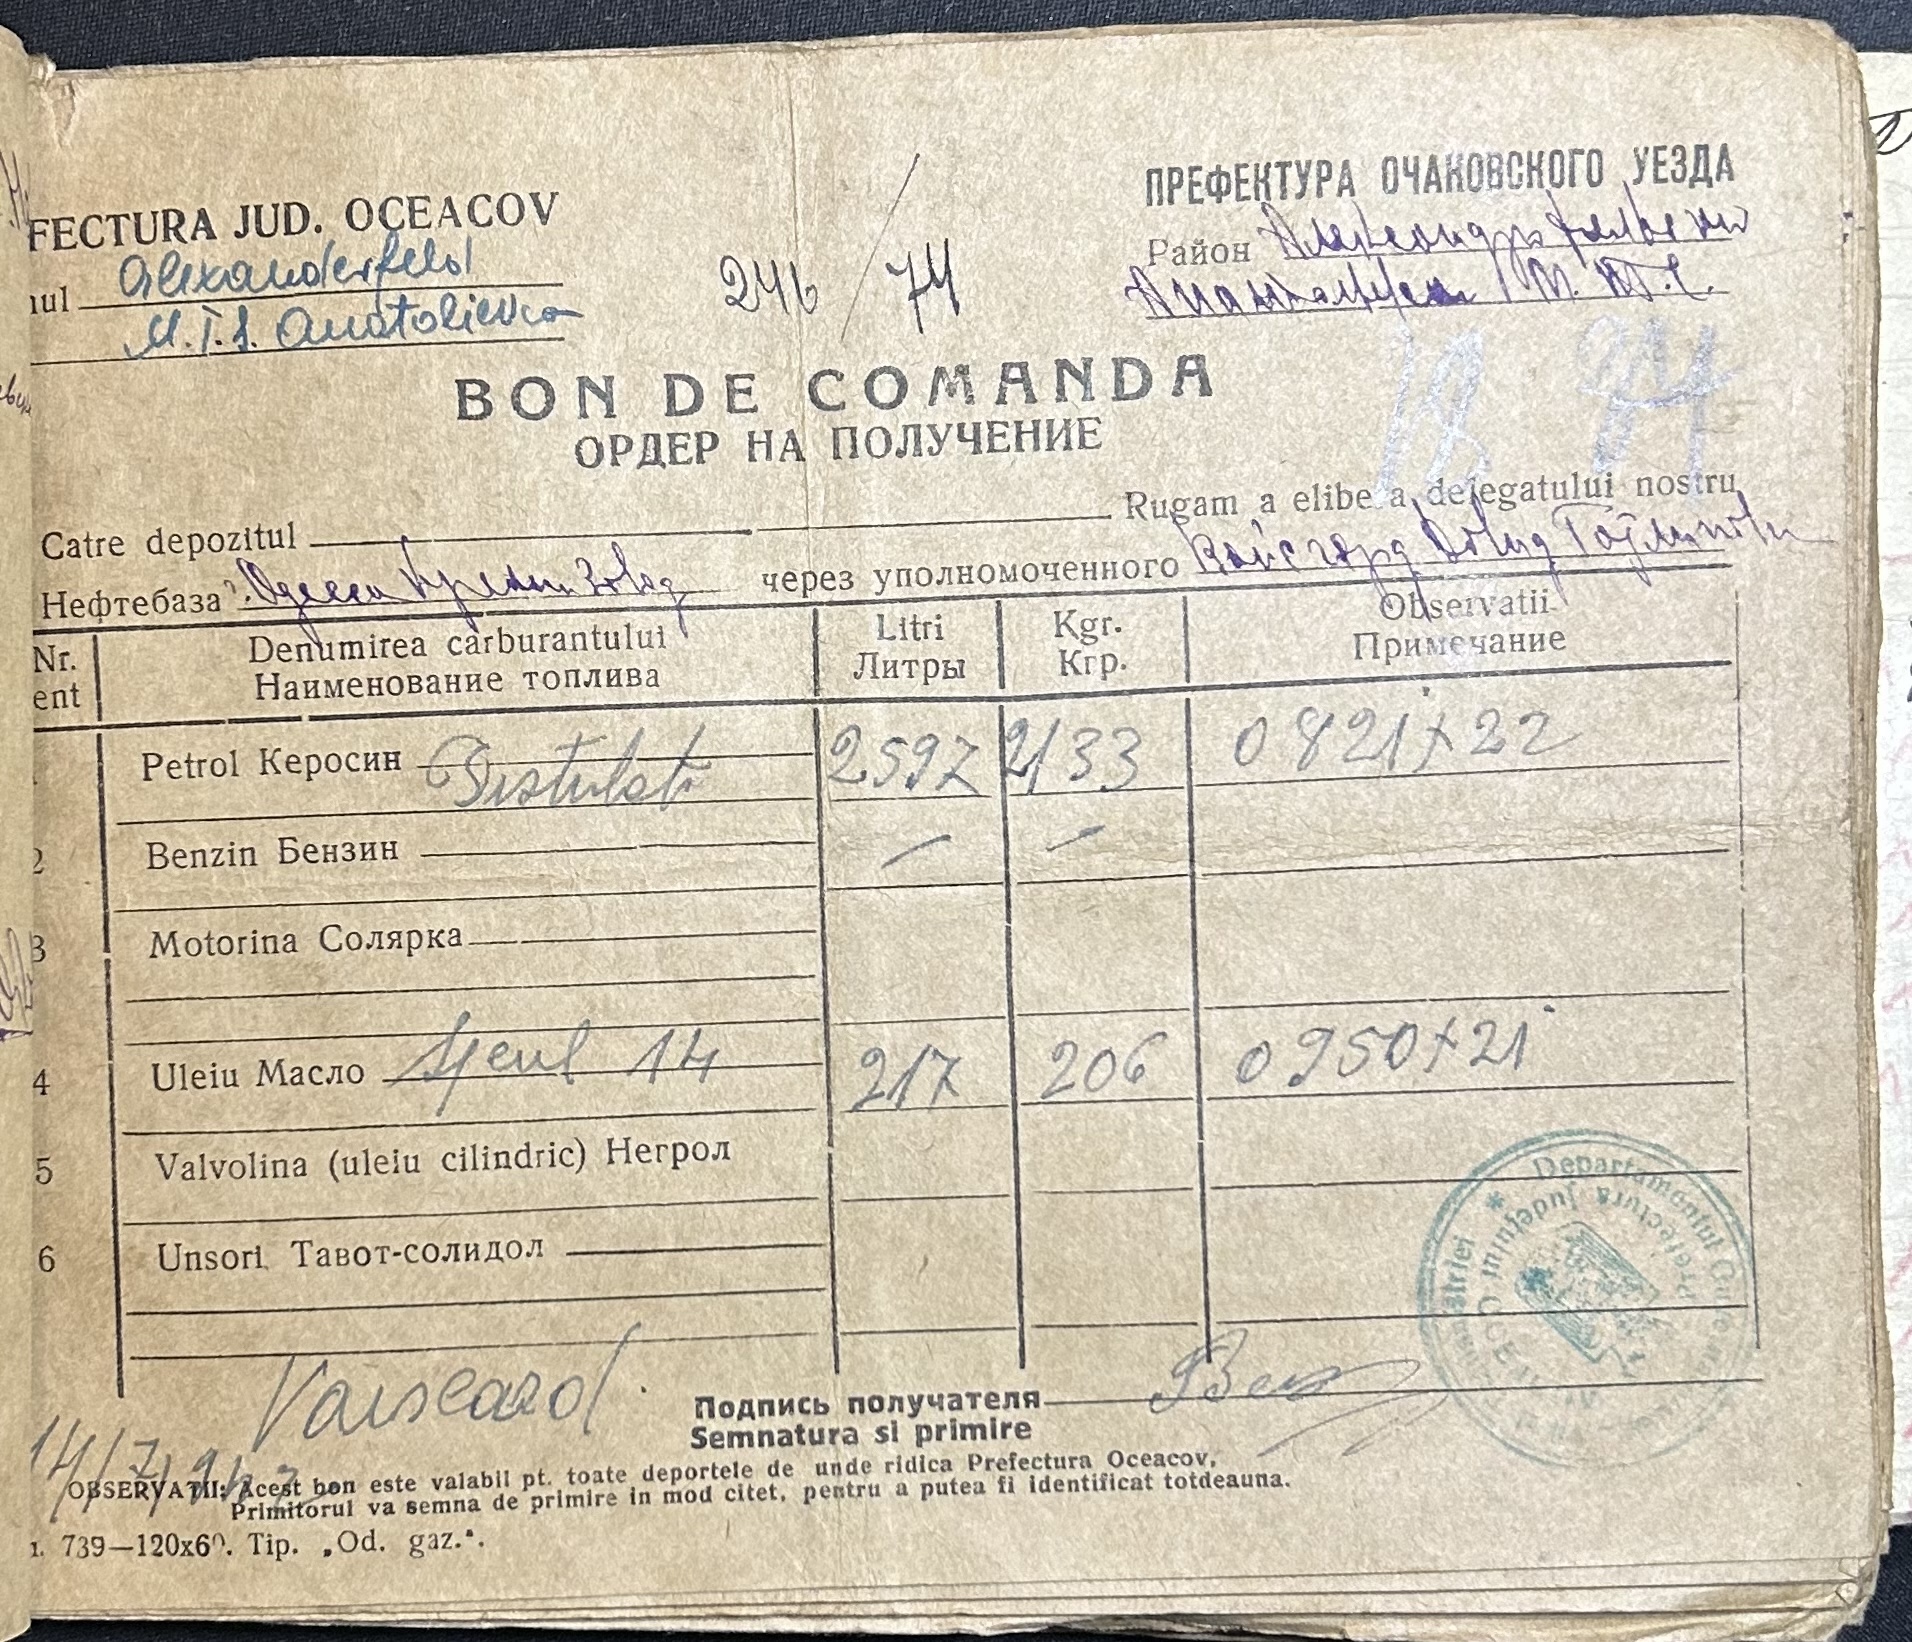 FECTURA JUD. OCEACOV
ПРЕФЕКТУРА ОЧАКОВСКОГО УЕЗДА
nul Alexanderfeld
Район
M.T.S. Anatolievca
М. Т. С.
246 / 74
18 74
BON DE COMANDA
ОРДЕР НА ПОЛУЧЕНИЕ
Catre depozitul Rugam a elibera delegatului nostru
Нефтебаза Одесса через уполномоченного Вайсгард Давид
Nr. Denumirea carburantului Litri Kgr. Observatii
ent Наименование топлива Литры Кгр. Примечание
Petrol Керосин Distulat 2597 2133 0821+22
2 Benzin Бензин — —
3 Motorina Солярка
4 Uleiu Масло 14 217 206 0950+21
5 Valvolina (uleiu cilindric) Негрол
6 Unsori Тавот-солидол
Departamentul
Prefectura Judetului
Vaiscard
Подпись получателя
Semnatura si primire
14/7/942
OBSERVATII: Acest bon este valabil pt. toate deportele de unde ridica Prefectura Oceacov,
Primitorul va semna de primire in mod citet, pentru a putea fi identificat totdeauna.
1. 739—120x60. Tip. „Od. gaz.".